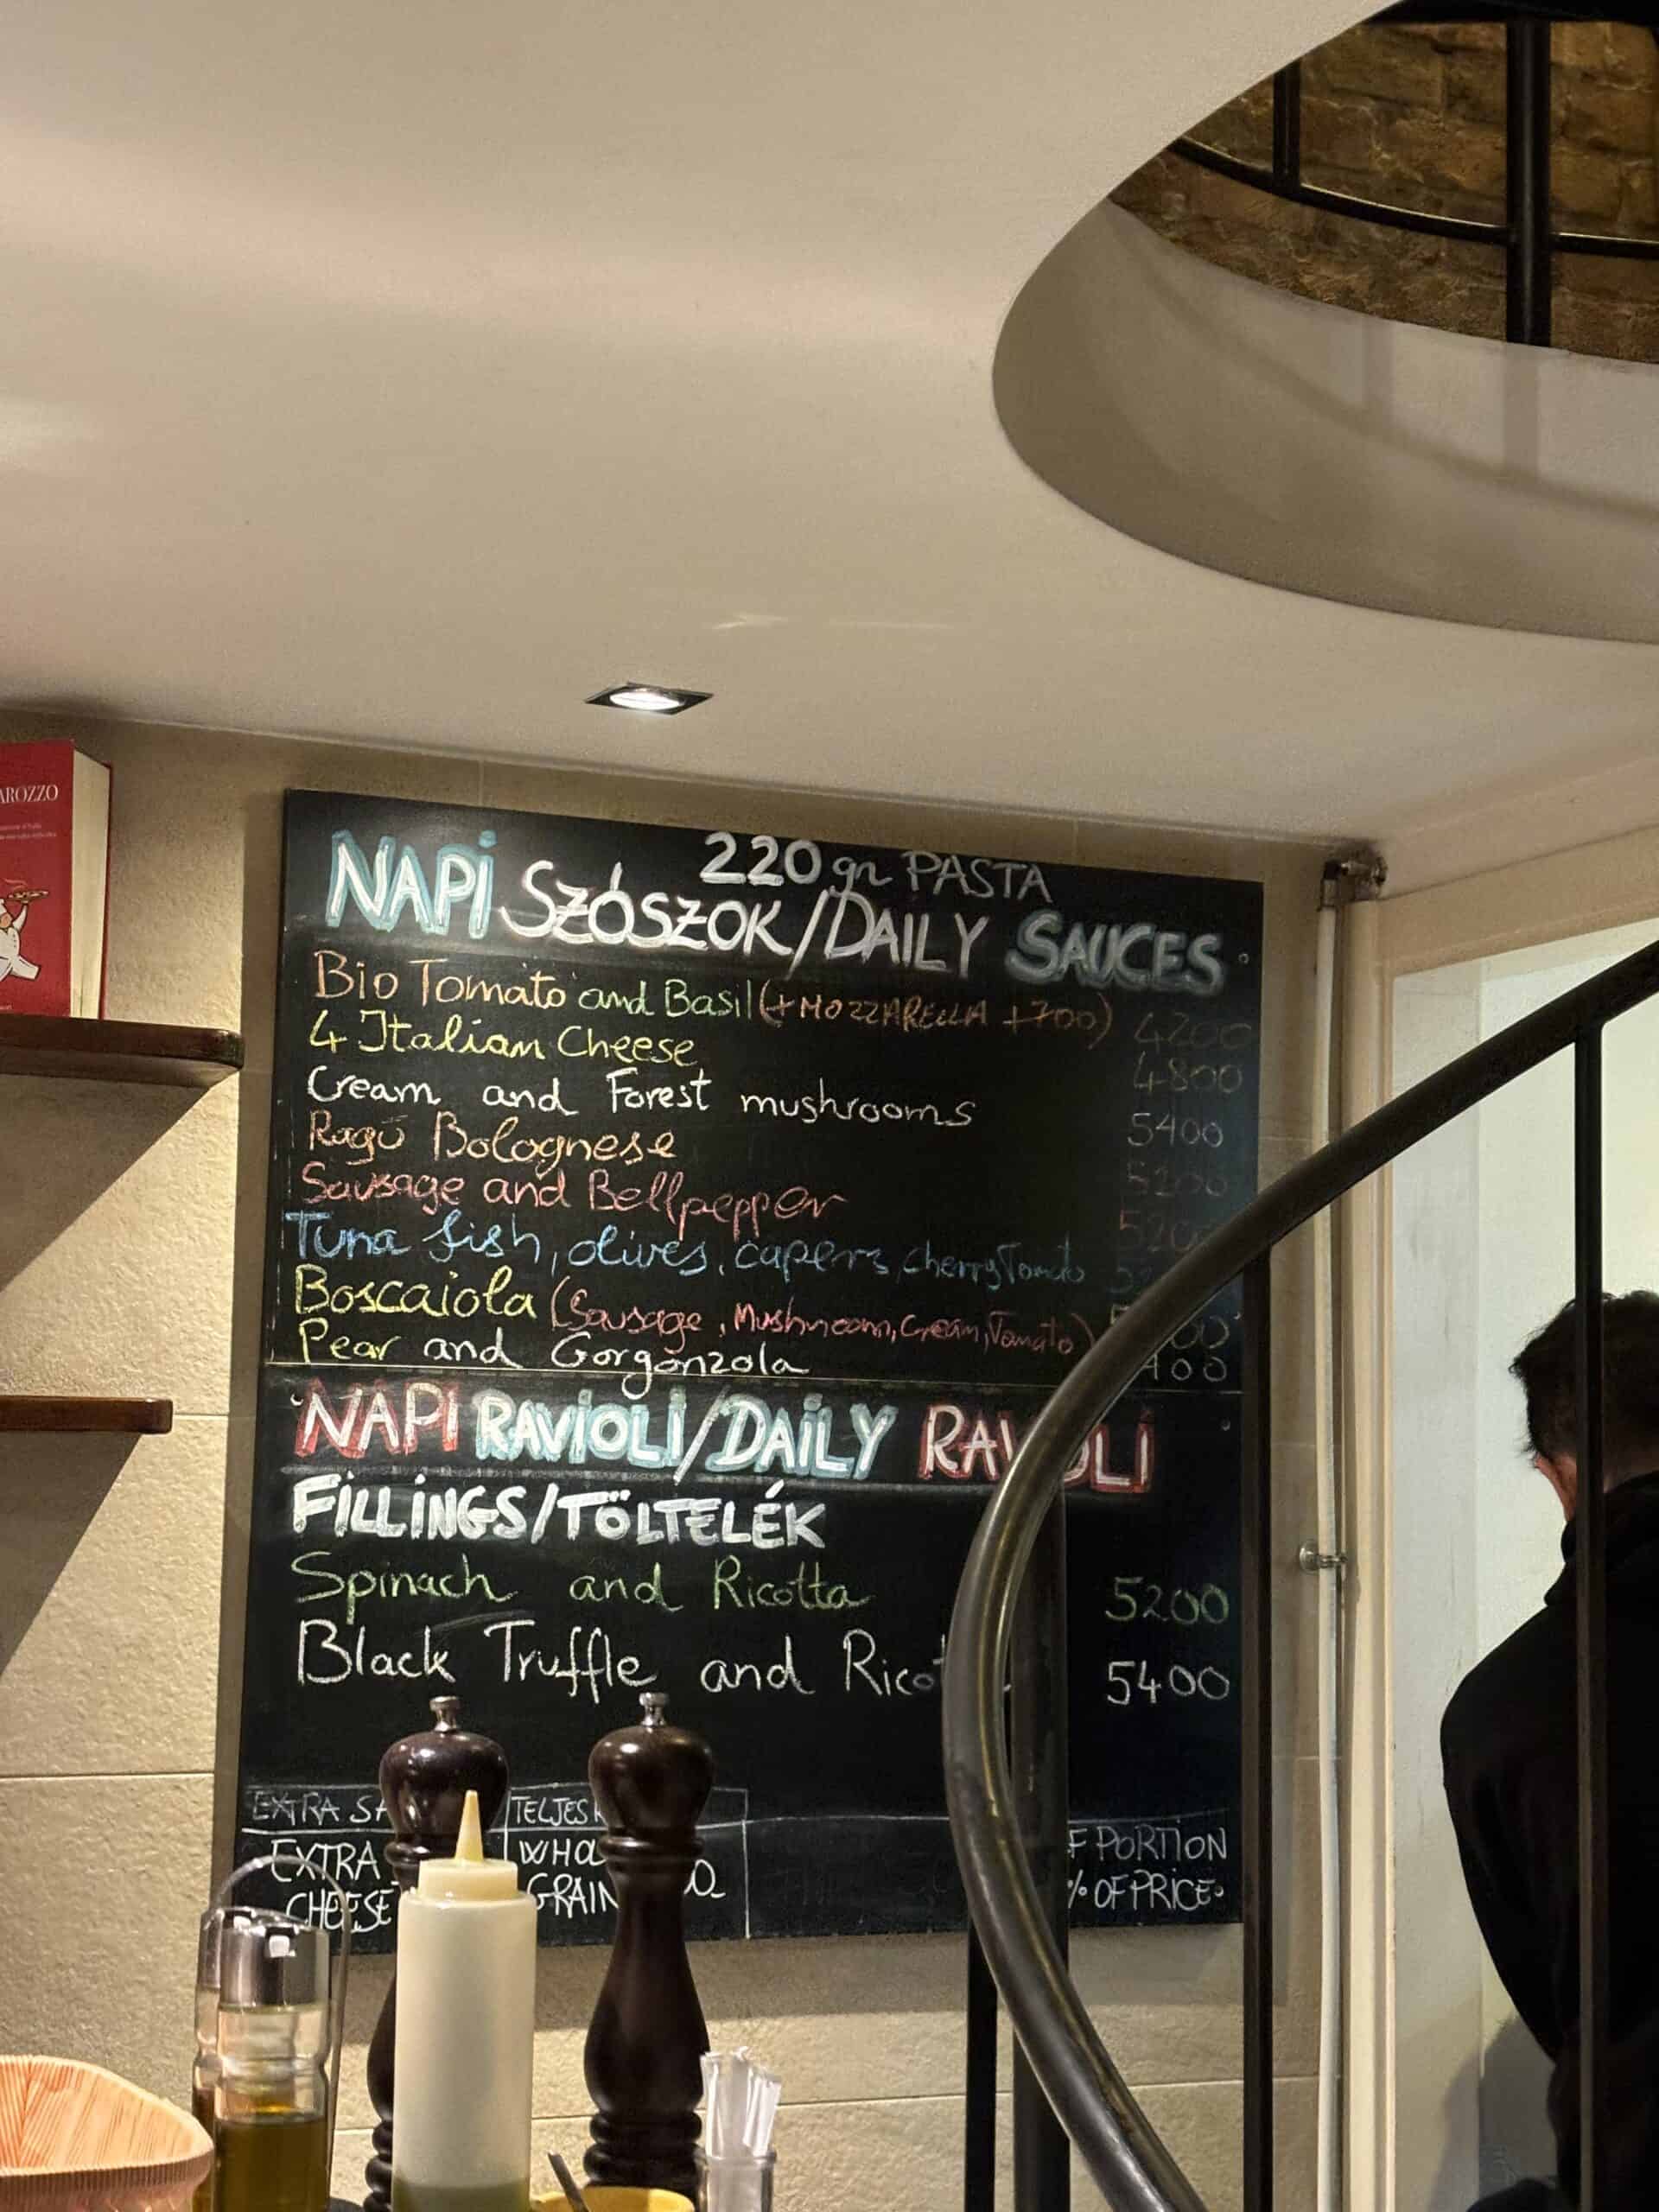 AROZZO
220 gr PASTA
NAPI SZÓSZOK/DAILY SAUCES
Bio Tomato and Basil (+ MOZZARELLA +700) 4200
4 Italian Cheese 4800
Cream and Forest mushrooms 5400
Ragū Bolognese 5200
Sausage and Bellpepper 5200
Tuna fish, olives, capers, cherryTomato
Boscaiola (Sausage, Mushroom, Cream, Tomato)
Pear and Gorgonzola
NAPI RAVIOLI/DAILY RAVIOLI
FILLINGS/TÖLTELÉK
Spinach and Ricotta 5200
Black Truffle and Rico 5400
EXTRA SA TELJES
EXTRA CHEESE
WHO GRAIN
F PORTION
% OF PRICE